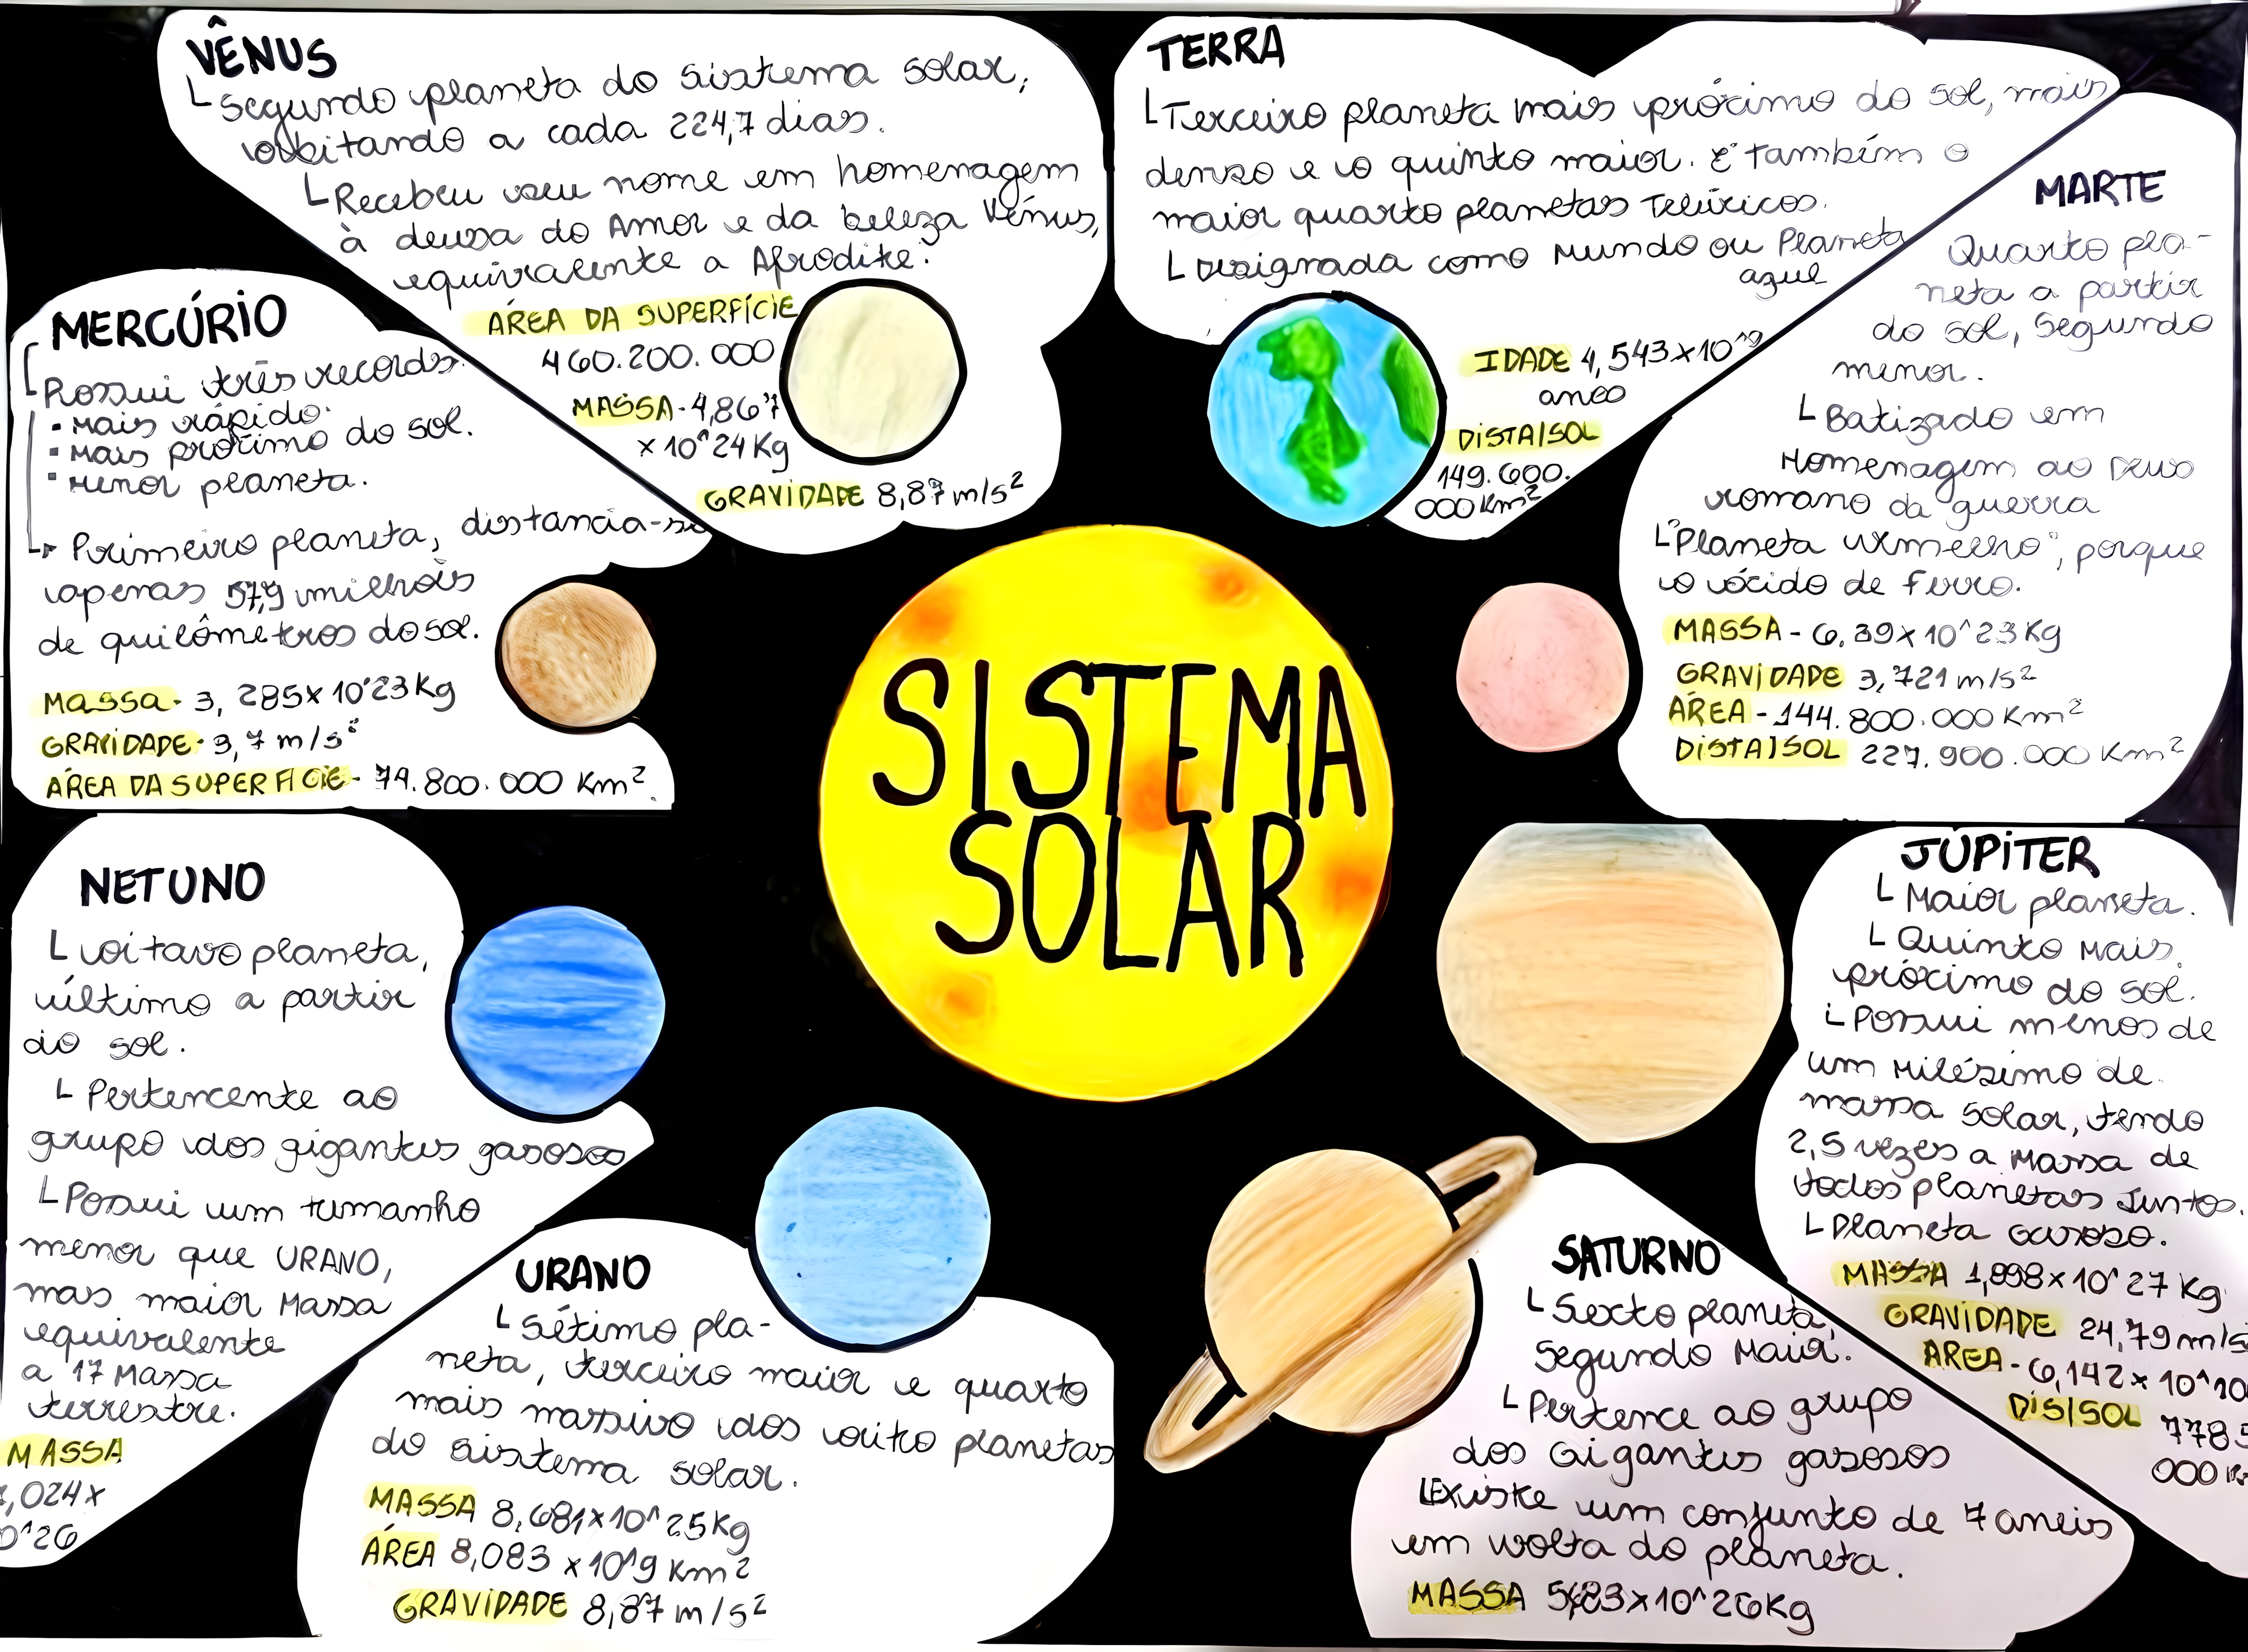 VÊNUS
Segundo planeta do sistema solar,
orbitando a cada 224,7 dias.
Recebeu seu nome em homenagem
à deusa do Amor e da beleza Vênus,
equivalente a Afrodite.
ÁREA DA SUPERFÍCIE
460.200.000
MASSA - 4,867
x 10^24 Kg
GRAVIDADE 8,87 m/s²
TERRA
Terceiro planeta mais próximo do sol, mais
denso e o quinto maior. E também o
maior quarto planetas Telúricos.
Designada como Mundo ou Planeta
azul
IDADE 4,543x10^9
anos
DISTA/SOL
149.600.
000 Km²
MARTE
Quarto pla-
neta a partir
do sol, Segundo
menor.
Batizado em
Homenagem ao Deus
romano da guerra
"Planeta vermelho", porque
o óxido de Ferro.
MASSA - 6,39x10^23Kg
GRAVIDADE 3,721 m/s²
ÁREA - 144.800.000 Km²
DISTA/SOL 227.900.000 Km²
MERCÚRIO
Possui três records.
• Mais rápido.
• Mais próximo do sol.
• Menor planeta.
Primeiro planeta, distancia-se
apenas 57,9 milhões
de quilômetros do sol.
MASSA - 3,285x10^23Kg
GRAVIDADE - 3,7 m/s²
ÁREA DA SUPERFICIE - 74.800.000 Km².
SISTEMA
SOLAR
NETUNO
oitavo planeta,
último a partir
do sol.
Pertencente ao
grupo dos gigantes gasosos
Possui um tamanho
menor que URANO,
mas maior Massa
equivalente
a 17 Massa
terrestre.
MASSA
,024x
0^26
URANO
Sétimo pla-
neta, terceiro maior e quarto
mais massivo dos oito planetas
do sistema solar.
MASSA 8,681x10^25Kg
ÁREA 8,083 x10^9 Km²
GRAVIDADE 8,87 m/s²
SATURNO
Sexto planeta,
Segundo Maior.
Pertence ao grupo
dos Gigantes gasosos
Existe um conjunto de 7 aneis
em volta do planeta.
MASSA 5,683x10^26Kg
JÚPITER
Maior planeta.
Quinto Mais
próximo do sol.
Possui menos de
um Milésimo de
massa solar, tendo
2,5 vezes a Massa de
todos planetas Juntos.
Planeta Gasoso.
MASSA 1,898x10^27 Kg
GRAVIDADE 24,79 m/s
ÁREA - 6,142x10^10
DIS/SOL 778 5
000 K